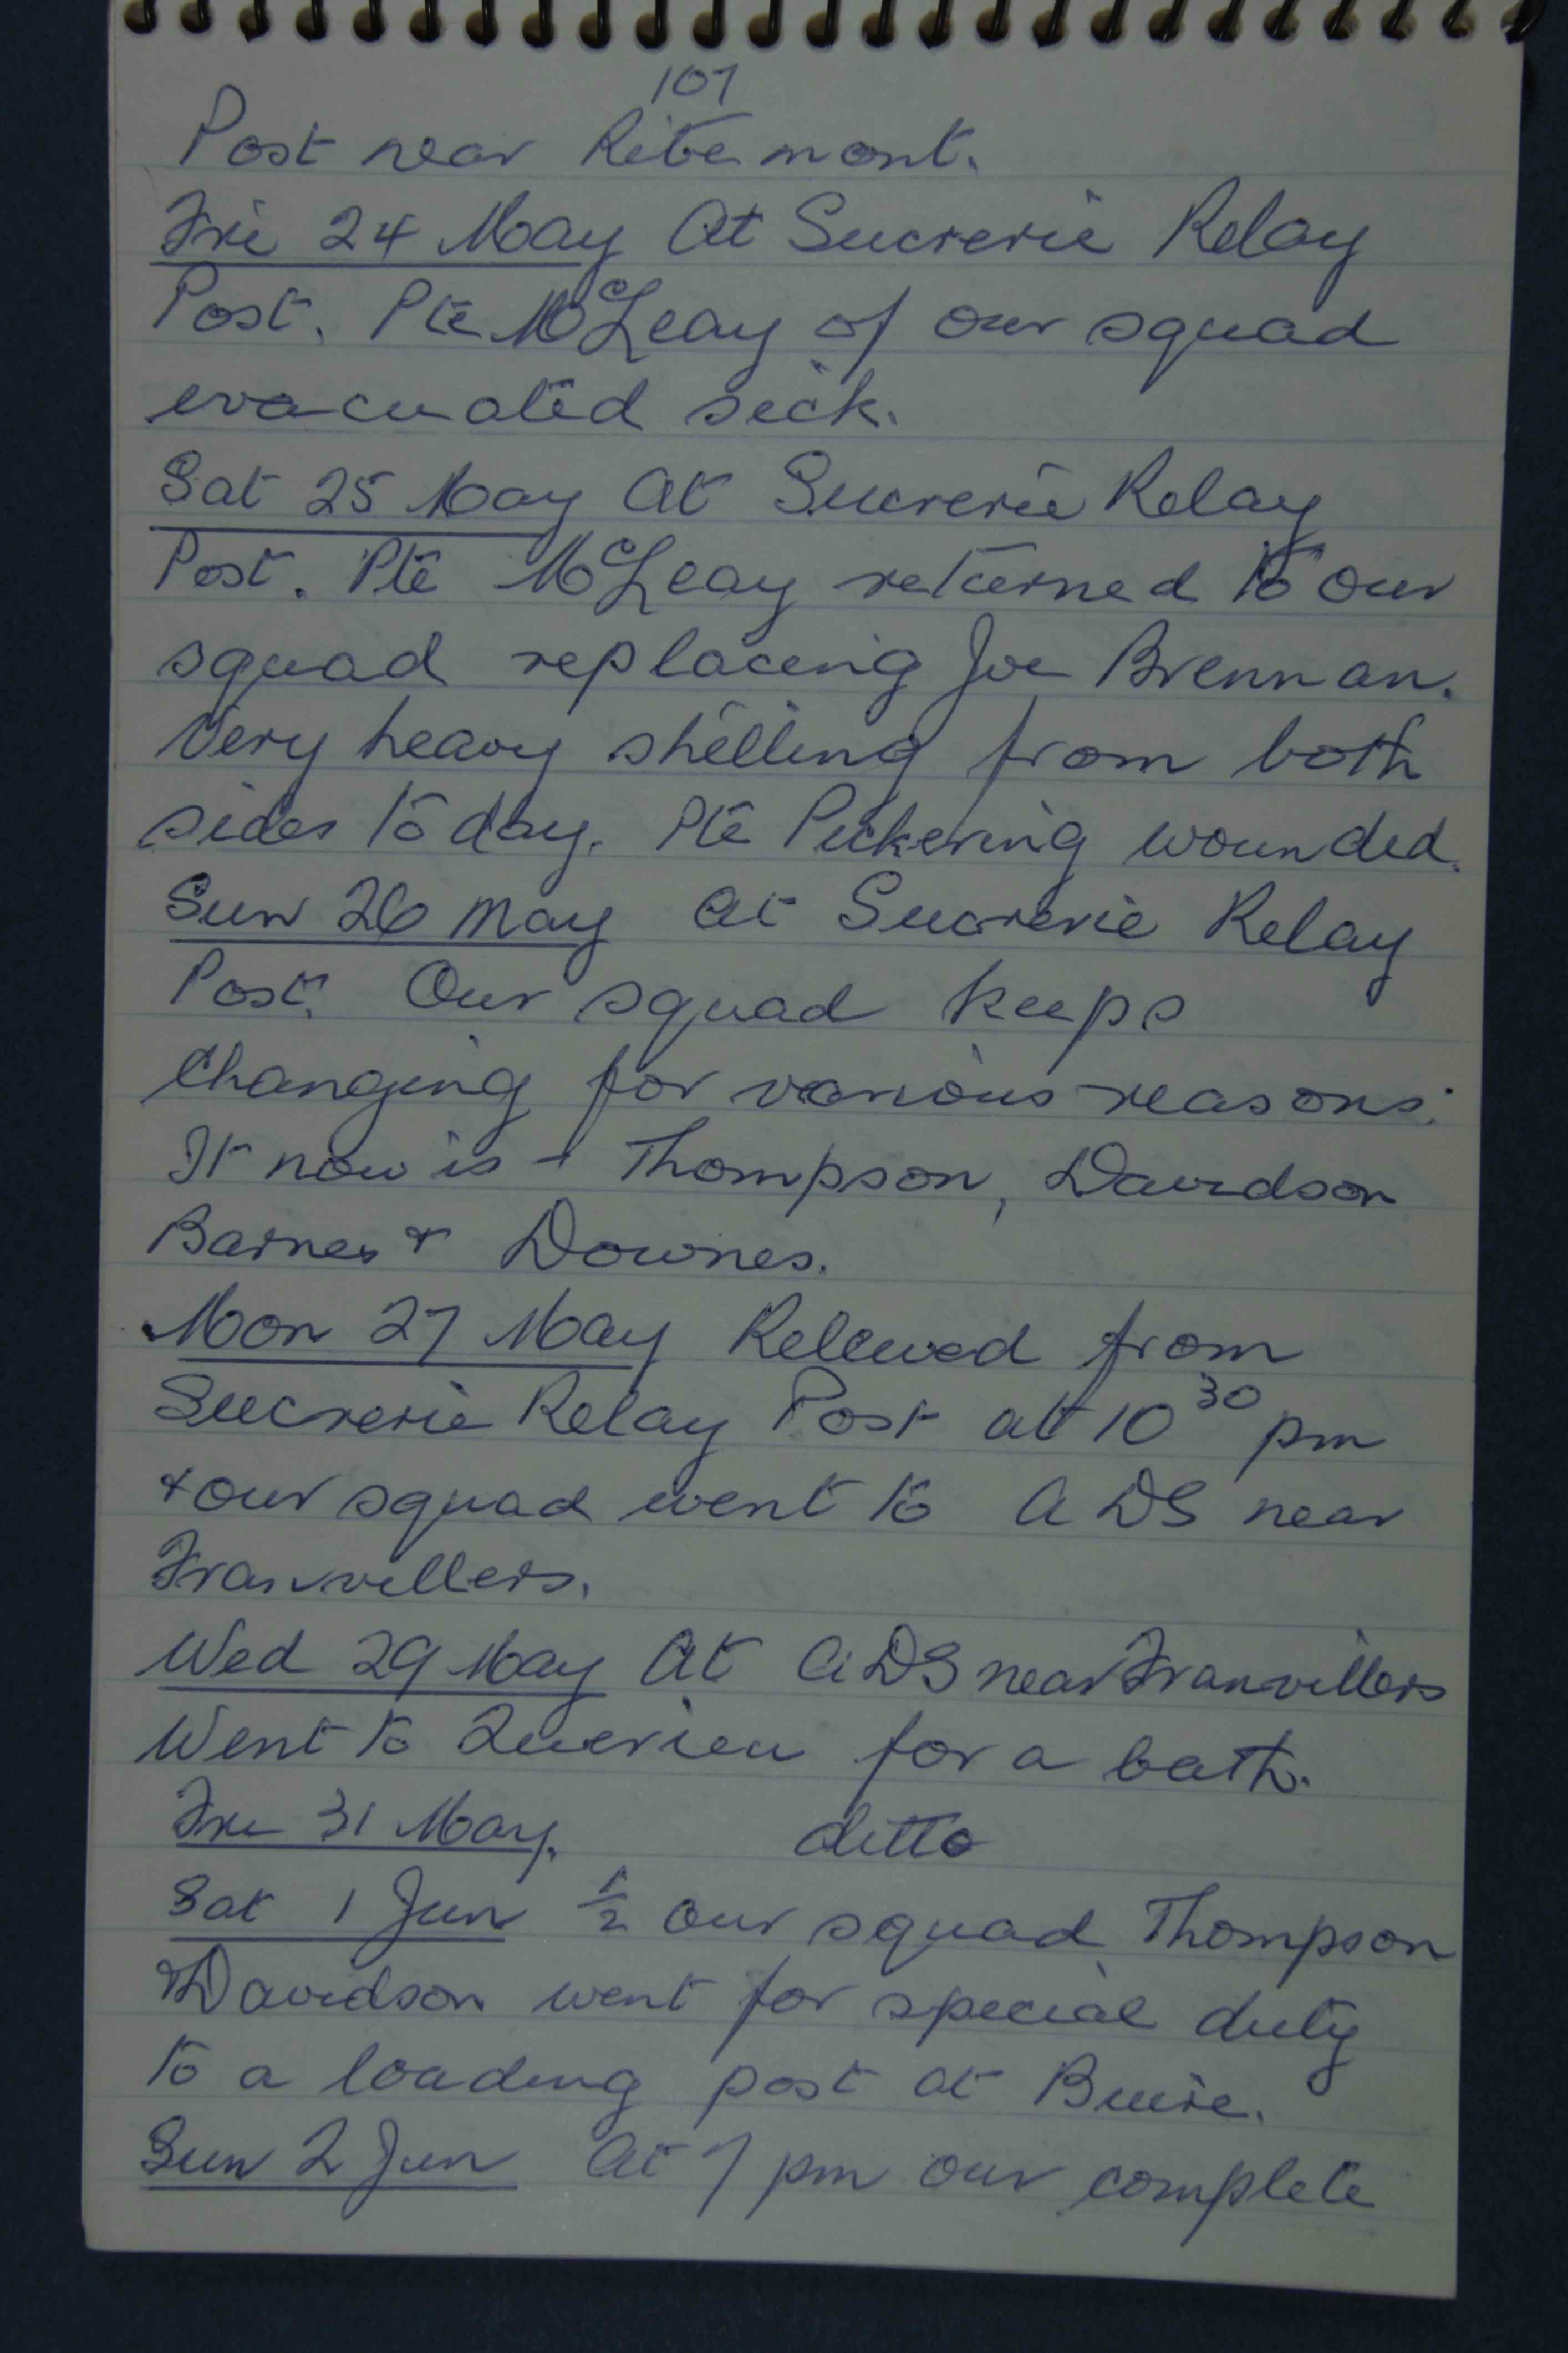 107
Post near Ribemont.
Fri 24 May At Sucrerie Relay
Post. Pte McLeay of our squad
evacuated sick.
Sat 25 May At Sucrerie Relay
Post. Pte McLeay returned to our
squad replacing Joe Brennan.
Very heavy shelling from both
sides to day. Pte Pickering wounded.
Sun 26 May At Sucrerie Relay
Post. Our squad keeps
changing for various reasons.
It now is - Thompson, Davidson
Barnes & Downes.
Mon 27 May Relieved from
Sucrerie Relay Post at 10 30 pm
& our squad went to ADS near
Franvillers.
Wed 29 May At ADS near Franvillers
Went to Querieu for a bath.
Fri 31 May. ditto
Sat 1 Jun ½ our squad Thompson
& Davidson went for special duty
to a loading post at Buire.
Sun 2 Jun At 7 pm our complete